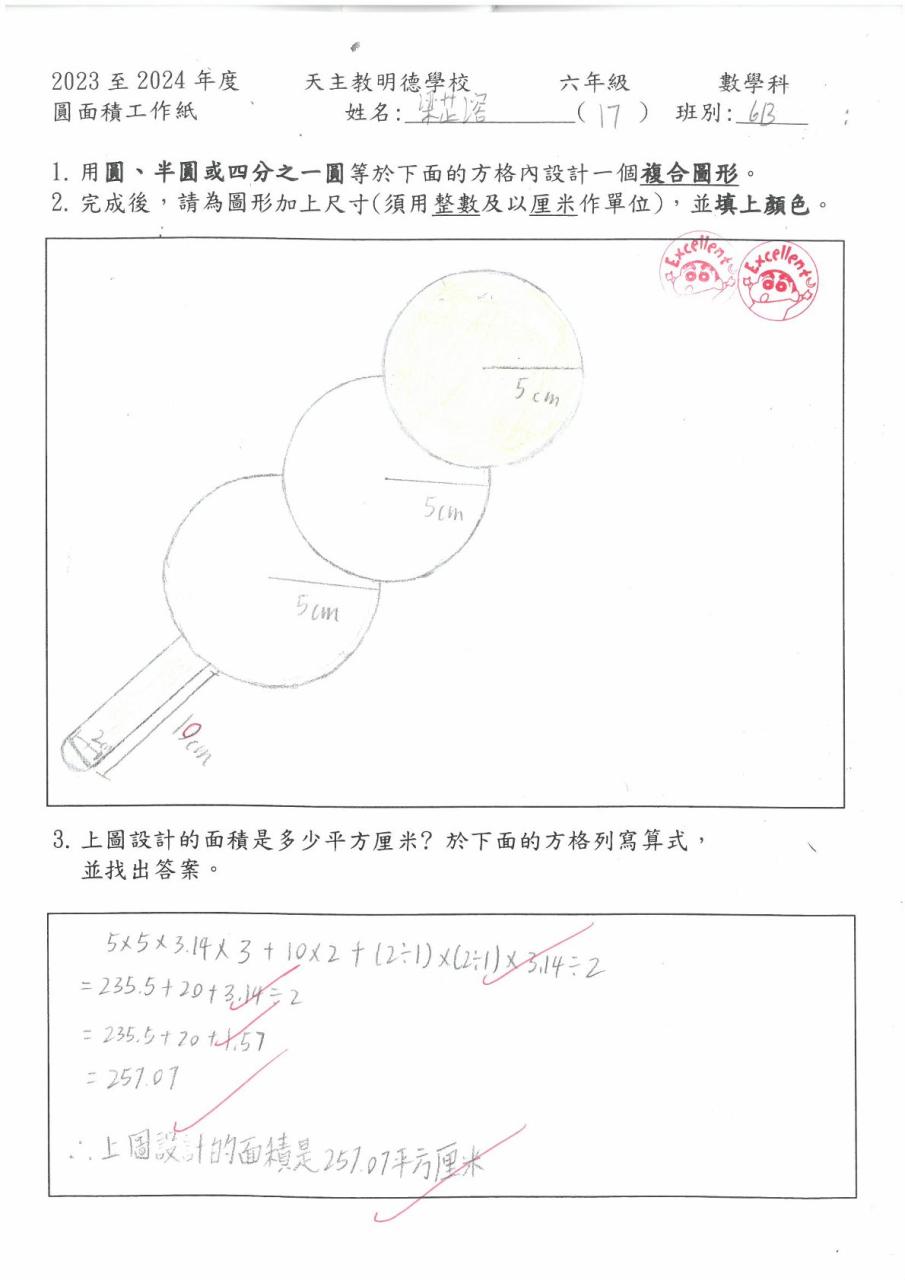 2023 至 2024 年度 天主教明德學校 六年級 數學科
圓面積工作紙 姓名: 梁芷溶 ( 17 ) 班別: 6B
1. 用圓、半圓或四分之一圓等於下面的方格內設計一個複合圖形。
2. 完成後，請為圖形加上尺寸(須用整數及以厘米作單位)，並填上顏色。
Excellent Excellent
5 cm
5cm
5cm
10cm
3. 上圖設計的面積是多少平方厘米? 於下面的方格列寫算式，
並找出答案。
5×5×3.14×3+10×2+(2÷1)×(2÷1)×3.14÷2
=235.5+20+3.14÷2
=235.5+20+1.57
=257.07
∴上圖設計的面積是257.07平方厘米